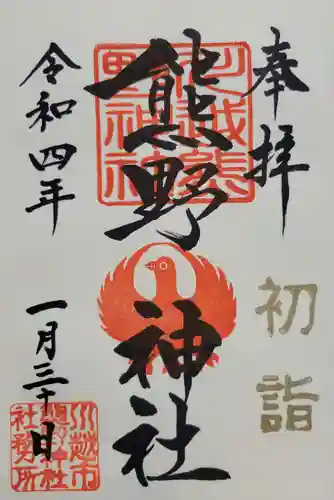 奉拝
初詣
熊野神社
令和四年
一月三十日
川越熊野神社
川越市熊野神社社務所